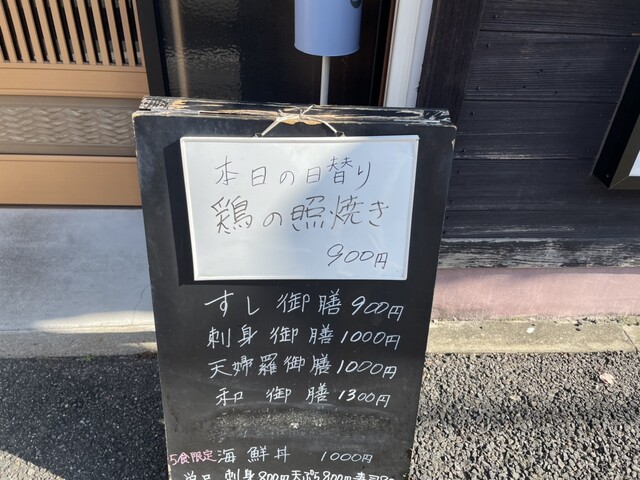 本日の日替り
鶏の照焼き
900円
すし御膳 900円
刺身御膳 1000円
天婦羅御膳 1000円
和御膳 1300円
5食限定 海鮮丼 1000円
単品 刺身800円天ぷら800円